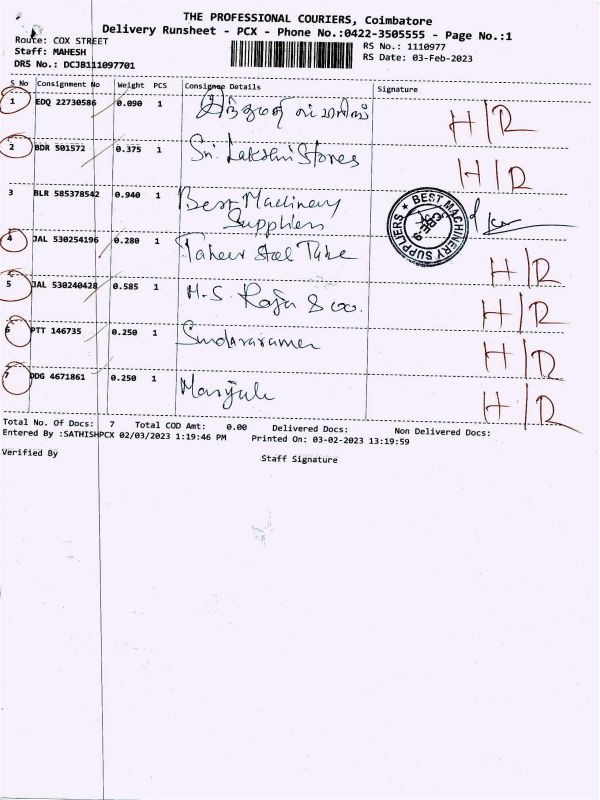 THE PROFESSIONAL COURIERS, Coimbatore
Delivery Runsheet - PCX - Phone No.:0422-3505555 - Page No.:1
Route: COX STREET
RS No.: 1110977
Staff: MAHESH
RS Date: 03-Feb-2023
DRS No.: DCJB111097701
S No Consignment No Weight PCS Consignee Details Signature
1 EDQ 22730586 0.090 1 H/R
2 BDR 501572 0.375 1 Sri Lakshmi Stores H/R
3 BLR 585378542 0.940 1 Best Machinery
Suppliers
BEST MACHINERY SUPPLIERS
4 JAL 530254196 0.280 1 Taheer Steel Tube H/R
5 JAL 530240428 0.585 1 M.S. Raja & co. H/R
6 PTT 146735 0.250 1 Sundararaman H/R
7 DDG 4671861 0.250 1 Manjula H/R
Total No. Of Docs: 7 Total COD Amt: 0.00 Delivered Docs: Non Delivered Docs:
Entered By :SATHISHPCX 02/03/2023 1:19:46 PM Printed On: 03-02-2023 13:19:59
Verified By
Staff Signature